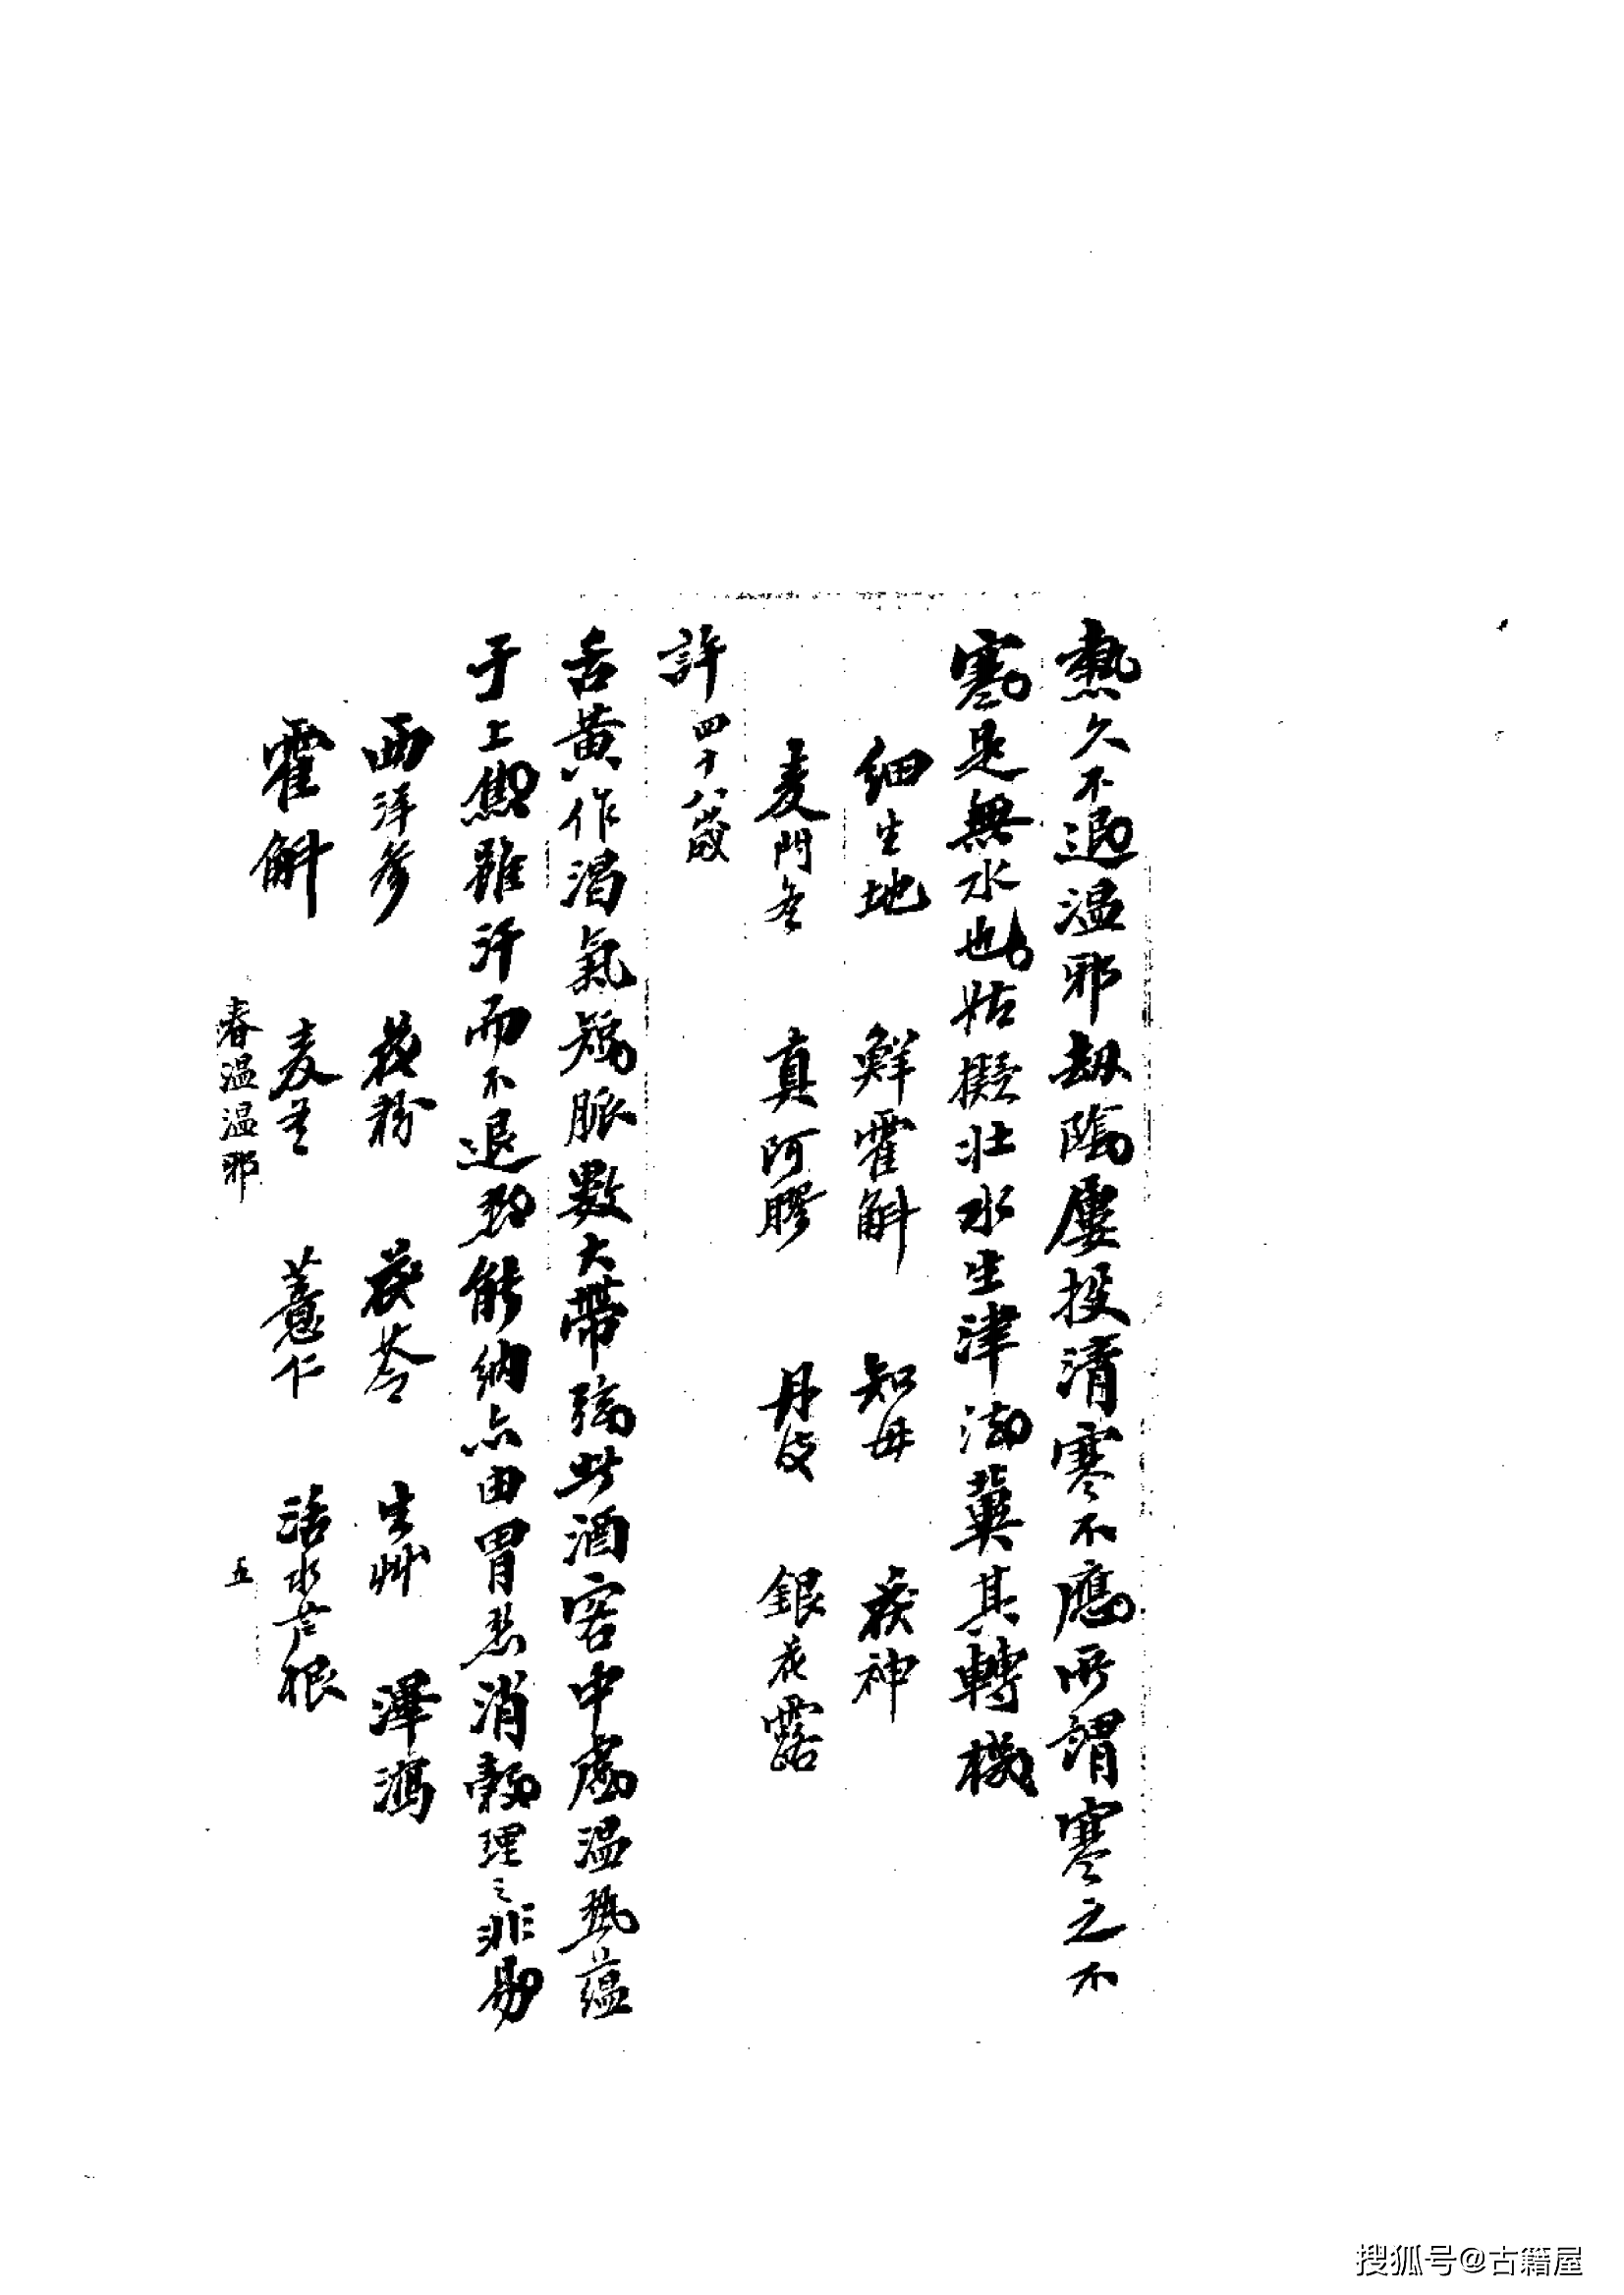 熱久不退温邪劫陰屢投清寒不應所謂寒之不
寒是無水也姑擬壯水生津法冀其轉機
細生地 鮮霍斛 知母 茯神
麦門冬 真阿膠 丹皮 銀花露
許四十八歲
舌黄作渴氣短脈數大帶弦此酒客中虛温熱蕴
于上焦雖汗而不退熱能納亦由胃熱消穀理之非易
西洋參 花粉 茯苓 生艸 澤瀉
霍斛 麦冬 薏仁 活水芦根
春温温邪 五
搜狐号@古籍屋